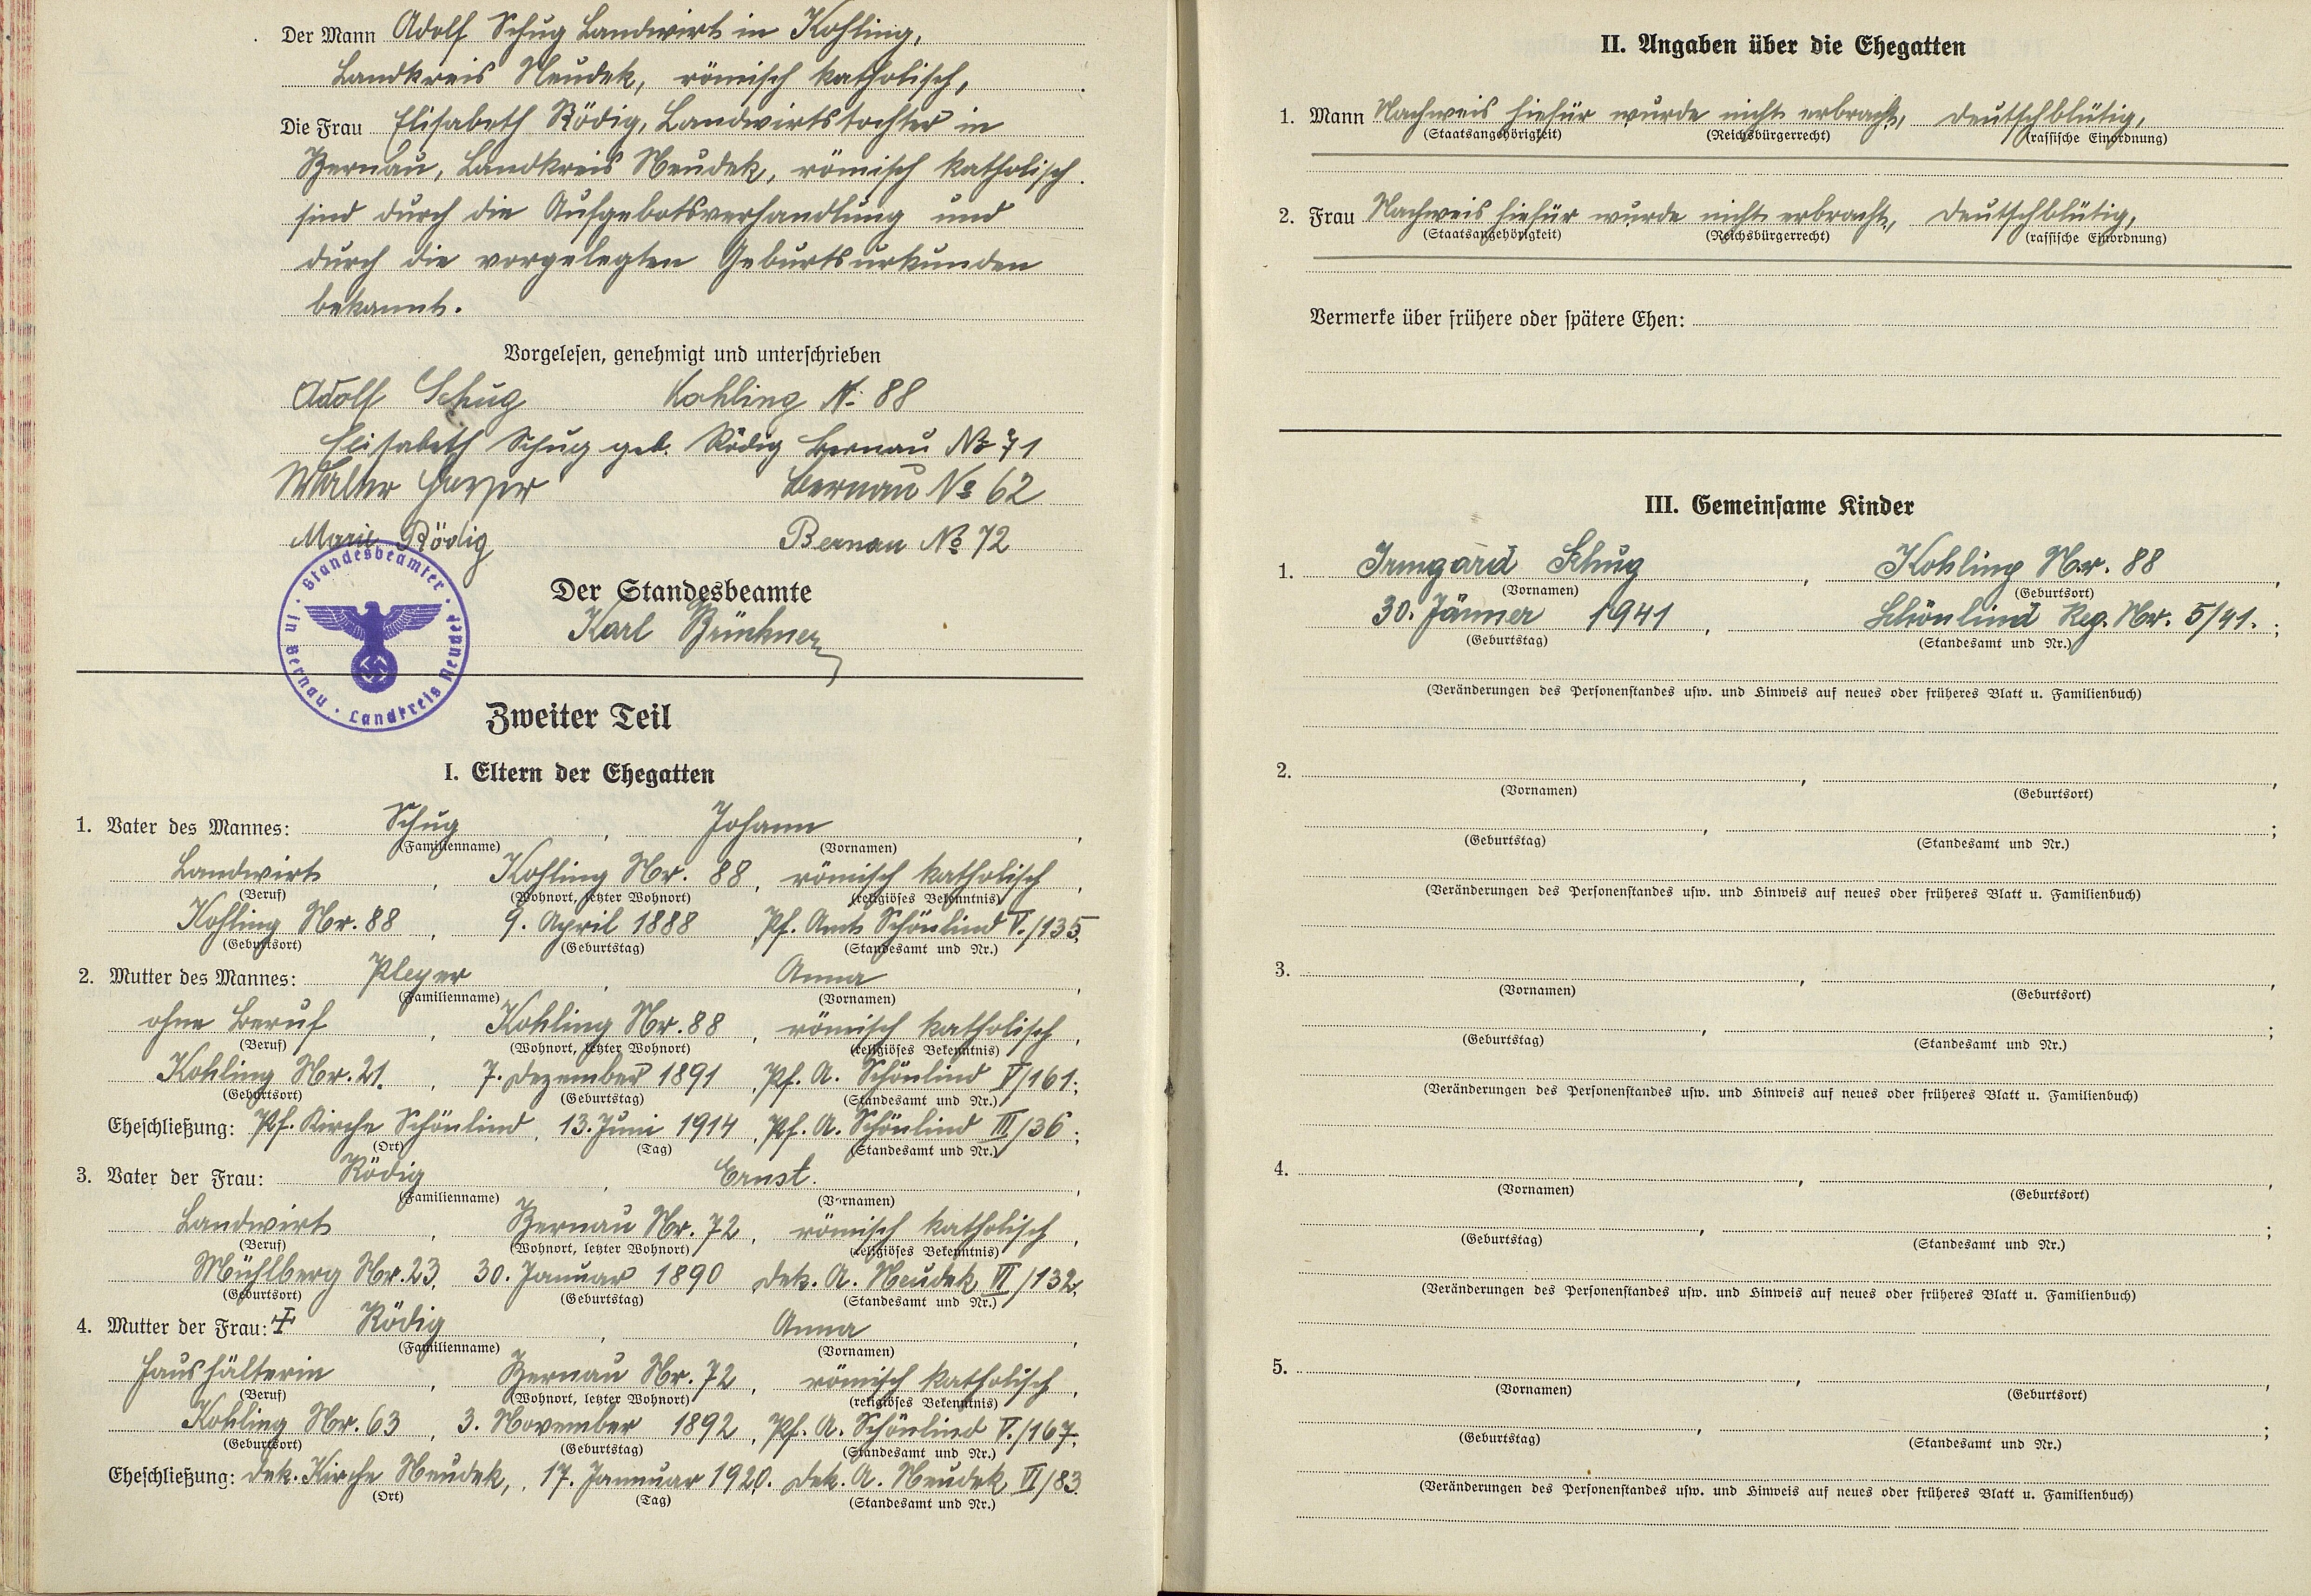 Der Mann Adolf Schug Landwirt in Kohling,
Landkreis Neudek, römisch katholisch,
Die Frau Elisabeth Rödig, Landwirtstochter in
Bernau, Landkreis Neudek, römisch katholisch
sind durch die Aufgebotsverhandlung und
durch die vorgelegten Geburtsurkunden
bekannt.
Vorgelesen, genehmigt und unterschrieben
Adolf Schug Kohling N: 88
Elisabeth Schug geb. Rödig Bernau No 71
Walter Bernau No 62
Marie Rödig Bernau No 72
Der Standesbeamte
Karl Brückner
Standesbeamter in Bernau · Landkreis Neudek
Zweiter Teil
I. Eltern der Ehegatten
1. Vater des Mannes: Schug, Johann,
(Familienname) (Vornamen)
Landwirt, Kohling Nr. 88, römisch katholisch,
(Beruf) (Wohnort, letzter Wohnort) (religiöses Bekenntnis)
Kohling Nr. 88, 9. April 1888 Pf. Amt Schönlind V./135;
(Geburtsort) (Geburtstag) (Standesamt und Nr.)
2. Mutter des Mannes: Pleyer, Anna,
(Familienname) (Vornamen)
ohne Beruf, Kohling Nr. 88, römisch katholisch,
(Beruf) (Wohnort, letzter Wohnort) (religiöses Bekenntnis)
Kohling Nr. 21., 7. Dezember 1891, Pf. A. Schönlind V/161;
(Geburtsort) (Geburtstag) (Standesamt und Nr.)
Eheschließung: Pf. Kirche Schönlind, 13. Juni 1914, Pf. A. Schönlind III/36;
(Ort) (Tag) (Standesamt und Nr.)
3. Vater der Frau: Rödig, Ernst.,
(Familienname) (Vornamen)
Landwirt, Bernau Nr. 72, römisch katholisch,
(Beruf) (Wohnort, letzter Wohnort) (religiöses Bekenntnis)
Mühlberg Nr. 23, 30. Januar 1890 Dek. A. Neudek VI/132;
(Geburtsort) (Geburtstag) (Standesamt und Nr.)
4. Mutter der Frau: Rödig, Anna,
(Familienname) (Vornamen)
Haushälterin, Bernau Nr. 72, römisch katholisch,
(Beruf) (Wohnort, letzter Wohnort) (religiöses Bekenntnis)
Kohling Nr. 63, 3. November 1892, Pf. A. Schönlind V./167;
(Geburtsort) (Geburtstag) (Standesamt und Nr.)
Eheschließung: Dek. Kirche Neudek, 17. Jannuar 1920. Dek. A. Neudek VI/83.
(Ort) (Tag) (Standesamt und Nr.)
II. Angaben über die Ehegatten
1. Mann Nachweis hiefür wurde nicht erbracht, deutschblütig,
(Staatsangehörigkeit) (Reichsbürgerrecht) (rassische Einordnung)
2. Frau Nachweis hiefür wurde nicht erbracht, deutschblütig,
(Staatsangehörigkeit) (Reichsbürgerrecht) (rassische Einordnung)
Vermerke über frühere oder spätere Ehen:
III. Gemeinsame Kinder
1. Irmgard Schug, Kohling Nr. 88,
(Vornamen) (Geburtsort)
30. Jänner 1941, Schönlind Reg. Nr. 5/41.;
(Geburtstag) (Standesamt und Nr.)
(Veränderungen des Personenstandes usw. und Hinweis auf neues oder früheres Blatt u. Familienbuch)
2. , ,
(Vornamen) (Geburtsort)
, ;
(Geburtstag) (Standesamt und Nr.)
(Veränderungen des Personenstandes usw. und Hinweis auf neues oder früheres Blatt u. Familienbuch)
3. , ,
(Vornamen) (Geburtsort)
, ;
(Geburtstag) (Standesamt und Nr.)
(Veränderungen des Personenstandes usw. und Hinweis auf neues oder früheres Blatt u. Familienbuch)
4. , ,
(Vornamen) (Geburtsort)
, ;
(Geburtstag) (Standesamt und Nr.)
(Veränderungen des Personenstandes usw. und Hinweis auf neues oder früheres Blatt u. Familienbuch)
5. , ,
(Vornamen) (Geburtsort)
, ;
(Geburtstag) (Standesamt und Nr.)
(Veränderungen des Personenstandes usw. und Hinweis auf neues oder früheres Blatt u. Familienbuch)